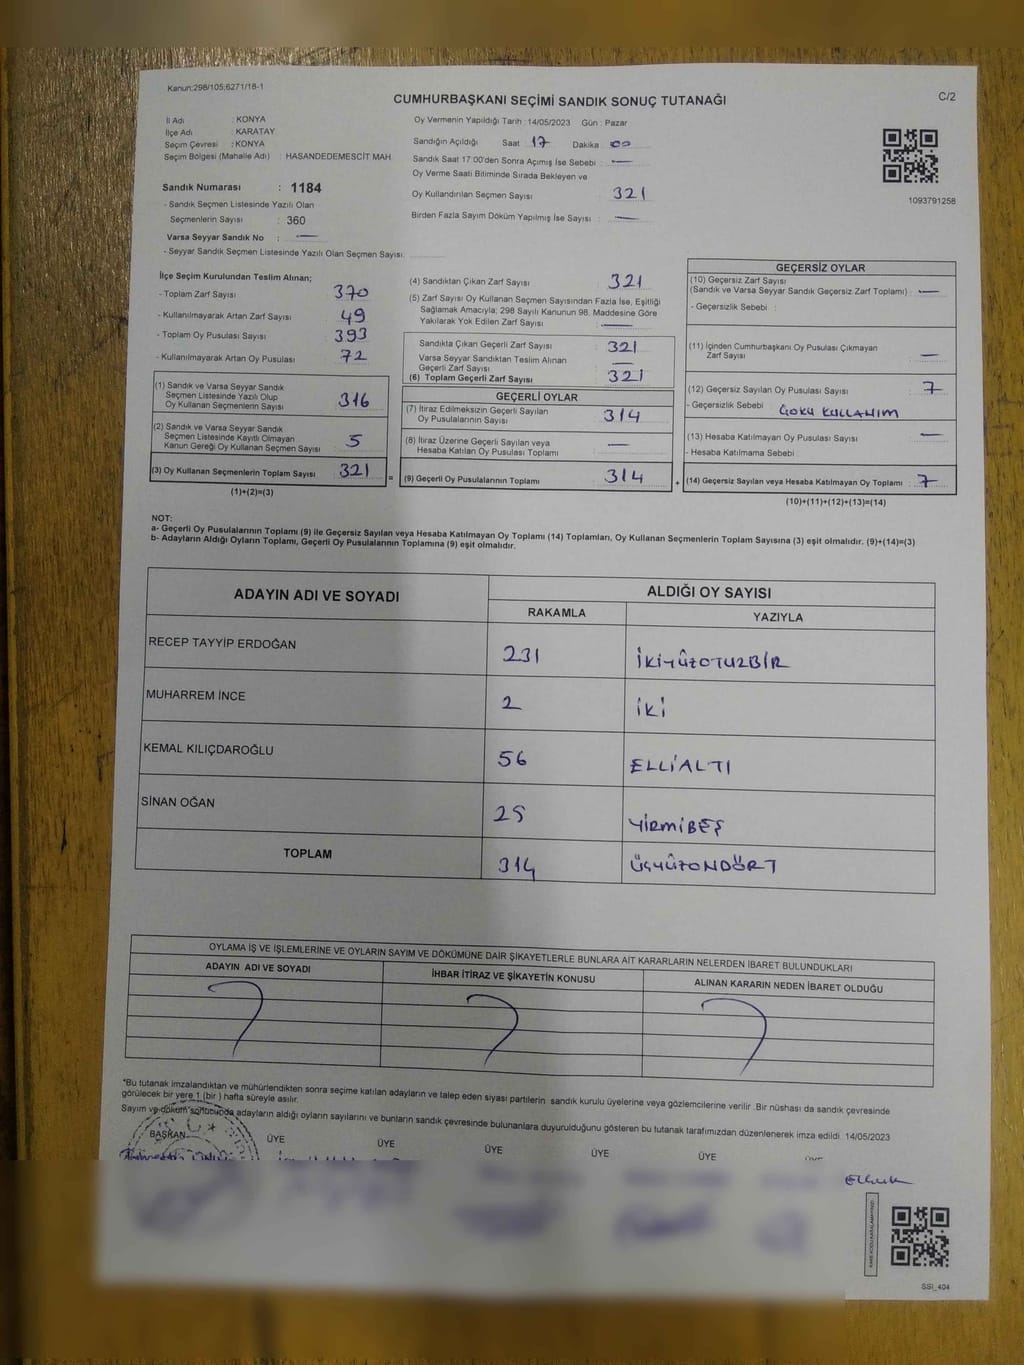 Kanun:298/105;6271/18-1
CUMHURBAŞKANI SEÇİMİ SANDIK SONUÇ TUTANAĞI
C/2
İl Adı : KONYA
İlçe Adı : KARATAY
Seçim Çevresi : KONYA
Seçim Bölgesi (Mahalle Adı) : HASANDEDEMESCİT MAH.
Sandık Numarası : 1184
- Sandık Seçmen Listesinde Yazılı Olan
Seçmenlerin Sayısı : 360
Varsa Seyyar Sandık No : —
- Seyyar Sandık Seçmen Listesinde Yazılı Olan Seçmen Sayısı:
Oy Vermenin Yapıldığı Tarih : 14/05/2023 Gün : Pazar
Sandığın Açıldığı Saat 17 Dakika 00
Sandık Saat 17:00'den Sonra Açımış İse Sebebi : —
Oy Verme Saati Bitiminde Sırada Bekleyen ve
Oy Kullandırılan Seçmen Sayısı 321
Birden Fazla Sayım Döküm Yapılmış İse Sayısı : —
1093791258
İlçe Seçim Kurulundan Teslim Alınan;
- Toplam Zarf Sayısı 370
- Kullanılmayarak Artan Zarf Sayısı 49
- Toplam Oy Pusulası Sayısı 393
- Kullanılmayarak Artan Oy Pusulası 72
(1) Sandık ve Varsa Seyyar Sandık
Seçmen Listesinde Yazılı Olup
Oy Kullanan Seçmenlerin Sayısı 316
(2) Sandık ve Varsa Seyyar Sandık
Seçmen Listesinde Kayıtlı Olmayan
Kanun Gereği Oy Kullanan Seçmen Sayısı 5
(3) Oy Kullanan Seçmenlerin Toplam Sayısı 321
(1)+(2)=(3)
(4) Sandıktan Çıkan Zarf Sayısı 321
(5) Zarf Sayısı Oy Kullanan Seçmen Sayısından Fazla İse, Eşitliği
Sağlamak Amacıyla; 298 Sayılı Kanunun 98. Maddesine Göre
Yakılarak Yok Edilen Zarf Sayısı : —
Sandıkta Çıkan Geçerli Zarf Sayısı : 321
Varsa Seyyar Sandıktan Teslim Alınan
Geçerli Zarf Sayısı : —
(6) Toplam Geçerli Zarf Sayısı : 321
GEÇERLİ OYLAR
(7) İtiraz Edilmeksizin Geçerli Sayılan
Oy Pusulalarının Sayısı : 314
(8) İtiraz Üzerine Geçerli Sayılan veya
Hesaba Katılan Oy Pusulası Toplamı : —
= (9) Geçerli Oy Pusulalarının Toplamı : 314
GEÇERSİZ OYLAR
(10) Geçersiz Zarf Sayısı
(Sandık ve Varsa Seyyar Sandık Geçersiz Zarf Toplamı) : —
- Geçersizlik Sebebi :
(11) İçinden Cumhurbaşkanı Oy Pusulası Çıkmayan
Zarf Sayısı : —
(12) Geçersiz Sayılan Oy Pusulası Sayısı : 7
- Geçersizlik Sebebi : ÇOKLU KULLANIM
(13) Hesaba Katılmayan Oy Pusulası Sayısı : —
- Hesaba Katılmama Sebebi :
+ (14) Geçersiz Sayılan veya Hesaba Katılmayan Oy Toplamı : 7
(10)+(11)+(12)+(13)=(14)
NOT:
a- Geçerli Oy Pusulalarının Toplamı (9) ile Geçersiz Sayılan veya Hesaba Katılmayan Oy Toplamı (14) Toplamları, Oy Kullanan Seçmenlerin Toplam Sayısına (3) eşit olmalıdır. (9)+(14)=(3)
b- Adayların Aldığı Oyların Toplamı, Geçerli Oy Pusulalarının Toplamına (9) eşit olmalıdır.
ADAYIN ADI VE SOYADI ALDIĞI OY SAYISI
RAKAMLA YAZIYLA
RECEP TAYYİP ERDOĞAN 231 İKİYÜZOTUZBİR
MUHARREM İNCE 2 İKİ
KEMAL KILIÇDAROĞLU 56 ELLİALTI
SİNAN OĞAN 25 YİRMİBEŞ
TOPLAM 314 ÜÇYÜZONDÖRT
OYLAMA İŞ VE İŞLEMLERİNE VE OYLARIN SAYIM VE DÖKÜMÜNE DAİR ŞİKAYETLERLE BUNLARA AİT KARARLARIN NELERDEN İBARET BULUNDUKLARI
ADAYIN ADI VE SOYADI İHBAR İTİRAZ VE ŞİKAYETİN KONUSU ALINAN KARARIN NEDEN İBARET OLDUĞU
*Bu tutanak imzalandıktan ve mühürlendikten sonra seçime katılan adayların ve talep eden siyasi partilerin sandık kurulu üyelerine veya gözlemcilerine verilir. Bir nüshası da sandık çevresinde
görülecek bir yere 1 (bir ) hafta süreyle asılır.
Sayım ve döküm sonucunda adayların aldığı oyların sayılarını ve bunların sandık çevresinde bulunanlara duyurulduğunu gösteren bu tutanak tarafımızdan düzenlenerek imza edildi. 14/05/2023
BAŞKAN ÜYE ÜYE ÜYE ÜYE ÜYE
SSI_404